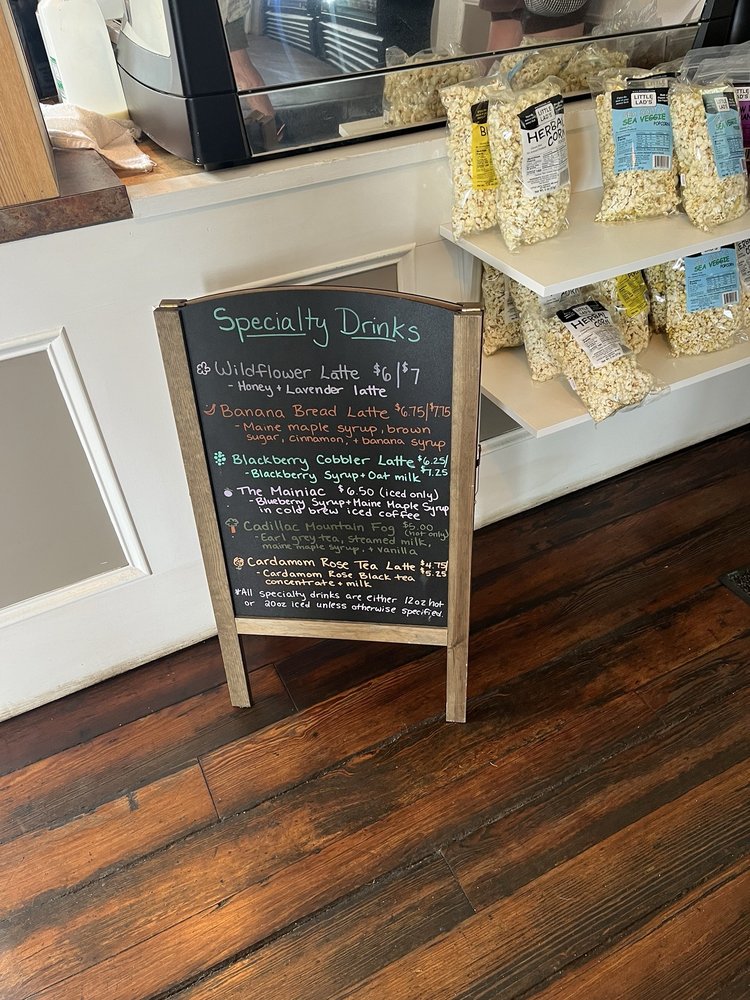 Specialty Drinks
Wildflower Latte $6/$7
- Honey + Lavender latte
Banana Bread Latte $6.75/$7.75
- Maine maple syrup, brown
sugar, cinnamon, + banana syrup
Blackberry Cobbler Latte $6.25/
$7.25
- Blackberry Syrup + Oat milk
The Mainiac $6.50 (iced only)
- Blueberry Syrup + Maine Maple Syrup
in cold brew iced coffee
Cadillac Mountain Fog $5.00
(hot only)
- Earl grey tea, steamed milk,
maine maple syrup, + vanilla
Cardamom Rose Tea Latte $4.75/
$5.25
- Cardamom Rose Black tea
concentrate + milk
*All specialty drinks are either 12oz hot
or 20oz iced unless otherwise specified.
HERBAL
CORN
LITTLE
LAD'S
SEA VEGGIE
POPCORN
SEA VEGGIE
HERBAL
CORN
SEA VEGGIE
POPCORN